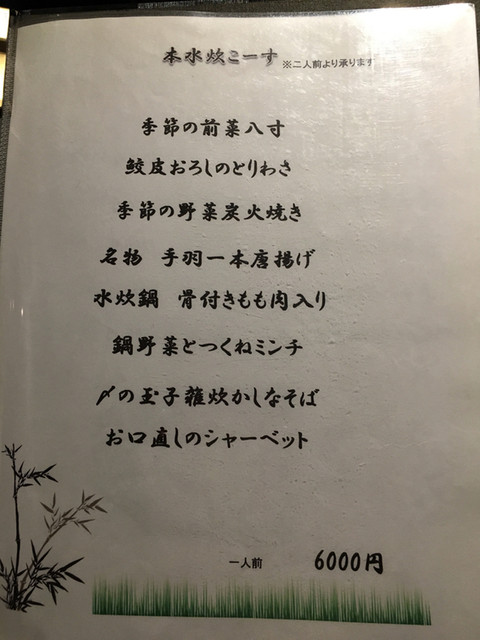 本水炊こーす ※二人前より承ります
季節の前菜八寸
鮫皮おろしのとりわさ
季節の野菜炭火焼き
名物 手羽一本唐揚げ
水炊鍋 骨付きもも肉入り
鍋野菜とつくねミンチ
〆の玉子雑炊かしなそば
お口直しのシャーベット
一人前 6000円